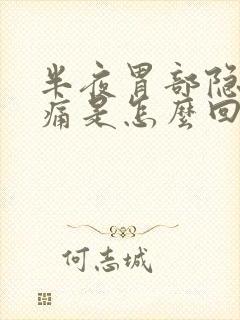 半夜胃部隐
痛是怎麼回
何志城